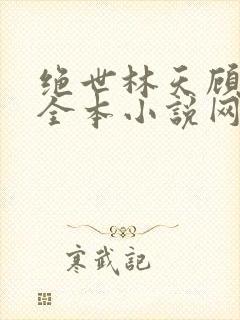 绝世林天顾
全本小说网
寒武記